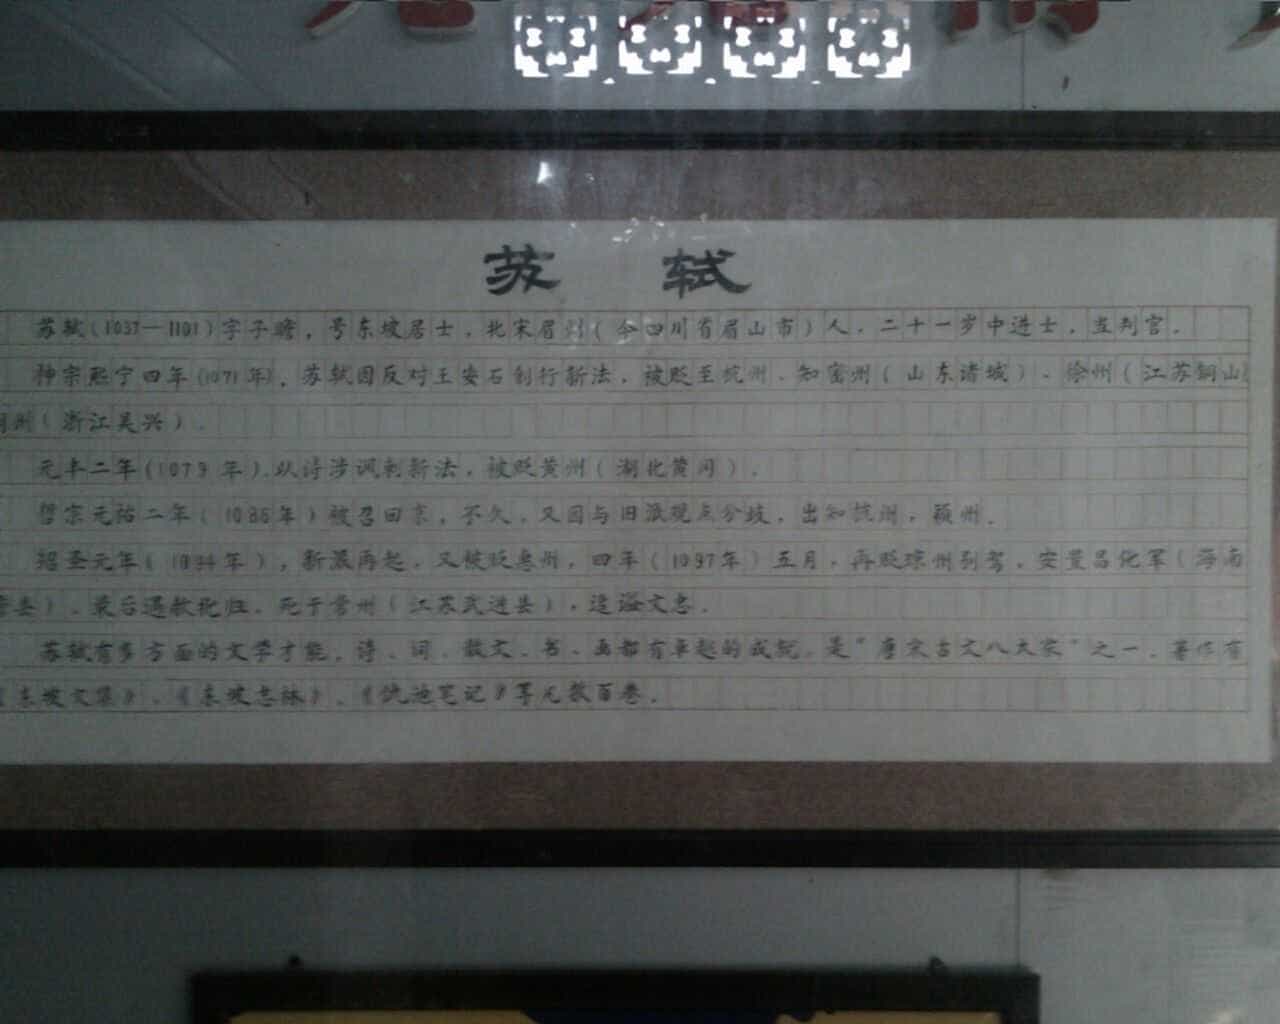 苏 轼
苏轼(1037—1101)字子瞻，号东坡居士，北宋眉州(今四川省眉山市)人，二十一岁中进士，当判官。
神宗熙宁四年(1071年)，苏轼因反对王安石创行新法，被贬至杭州、知密州(山东诸城)、徐州(江苏铜山)
湖州(浙江吴兴)。
元丰二年(1079年)，以诗涉讽刺新法，被贬黄州(湖北黄冈)。
哲宗元祐二年(1086年)被召回京，不久，又因与旧派观点分歧，出知杭州，颍州。
绍圣元年(1094年)，新派再起，又被贬惠州，四年(1097年)五月，再贬琼州别驾，安置昌化军(海南
县)、最后遇赦北归，死于常州(江苏武进县)，追谥文忠。
苏轼有多方面的文学才能，诗、词、散文、书、画都有卓越的成就，是"唐宋古文八大家"之一，著作有
《东坡文集》、《东坡志林》、《仇池笔记》等凡数百卷。